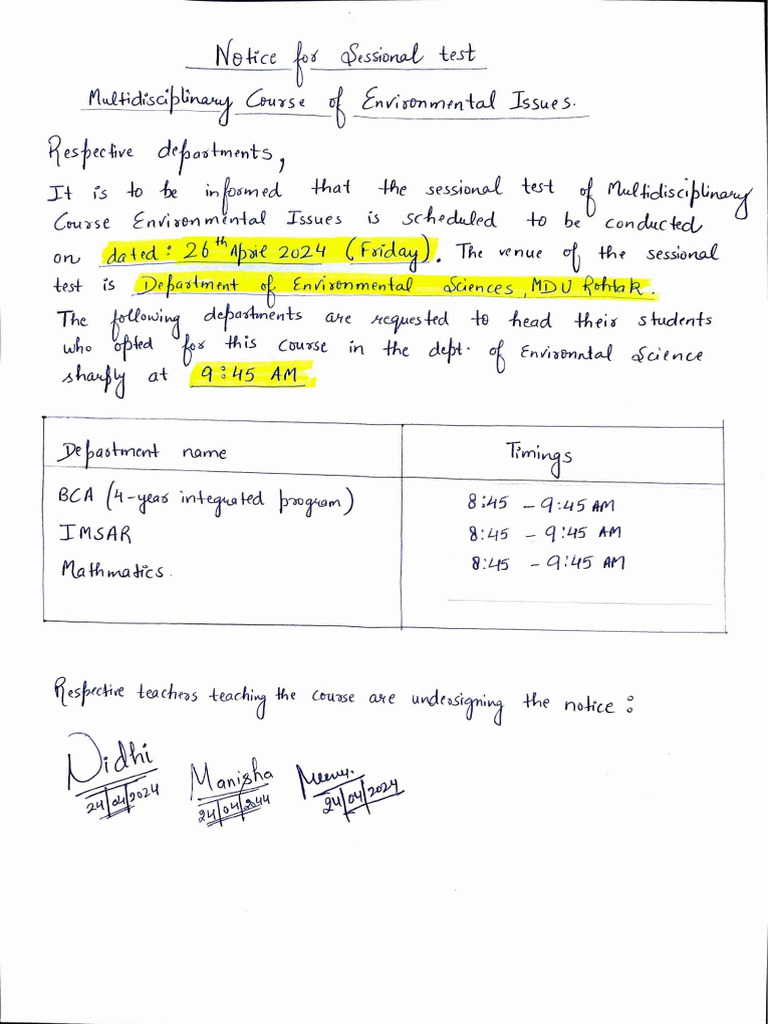 Notice for Sessional test
Multidisciplinary Course of Environmental Issues.
Respective departments,
It is to be informed that the sessional test of Multidisciplinary
Course Environmental Issues is scheduled to be conducted
on dated: 26th April 2024 (Friday). The venue of the sessional
test is Department of Environmental Sciences, MDU Rohtak.
The following departments are requested to head their students
who opted for this course in the dept. of Environntal Science
sharply at 9:45 AM
Department name Timings
BCA (4-year integrated program) 8:45 - 9:45 AM
IMSAR 8:45 - 9:45 AM
Mathmatics. 8:45 - 9:45 AM
Respective teachers teaching the course are undersigning the notice:
Nidhi Manisha
24/04/2024 24/04/2044 24/04/2024